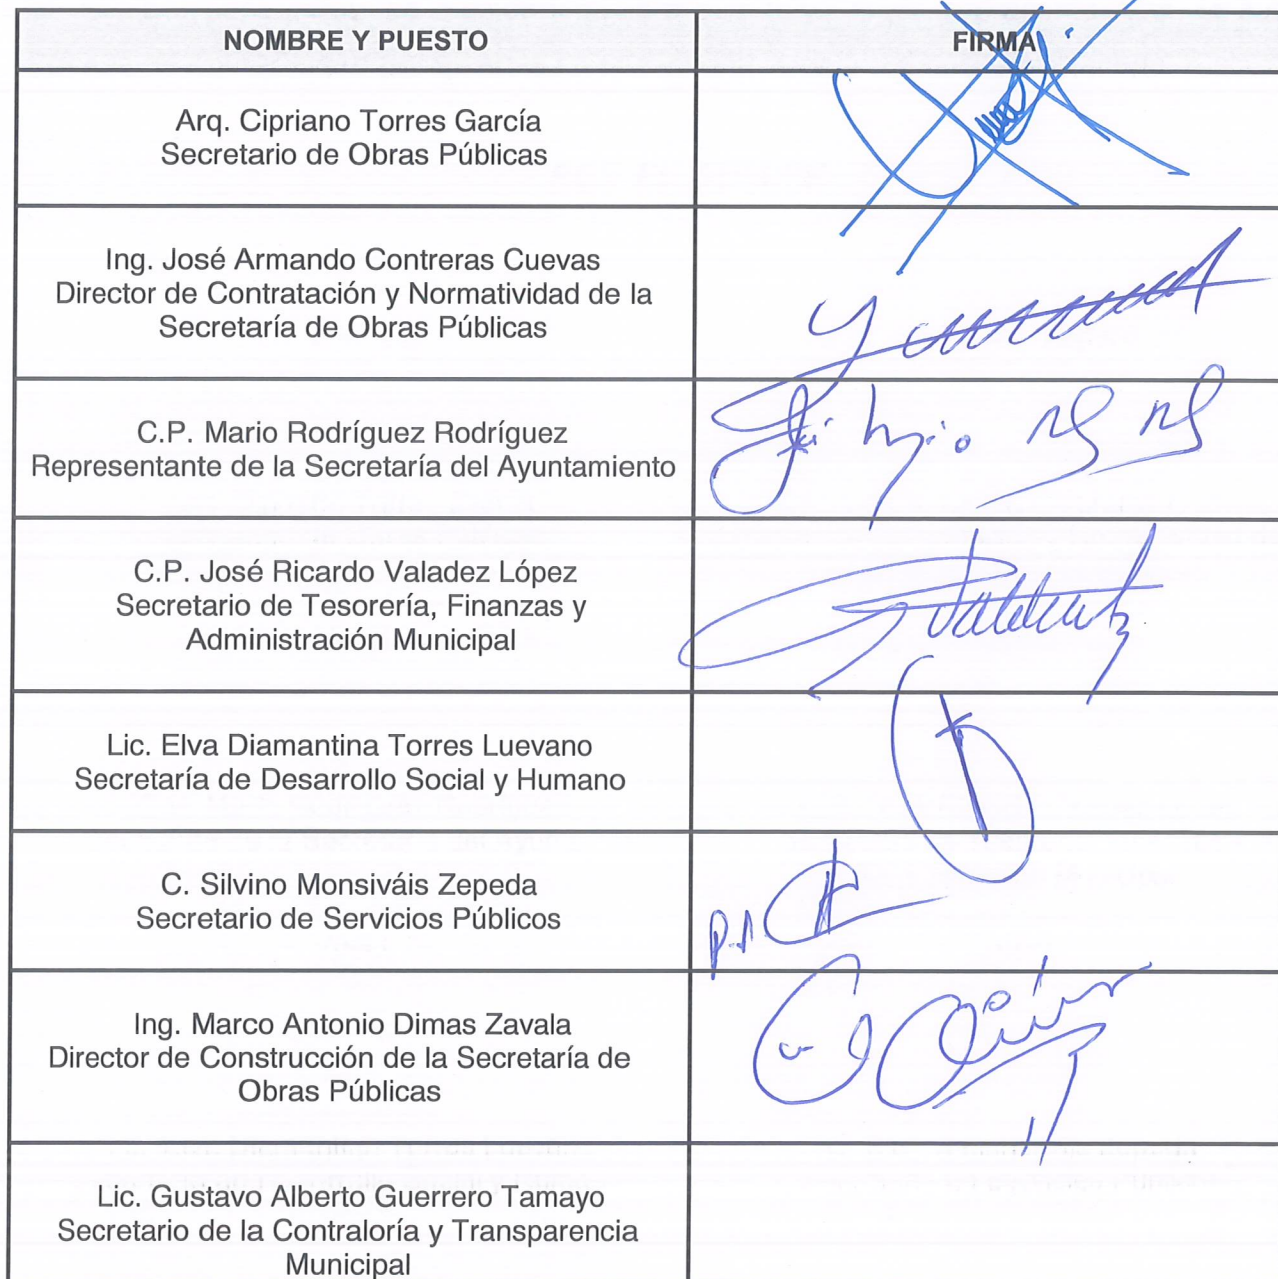 NOMBRE Y PUESTO
FIRMA
Arq. Cipriano Torres García
Secretario de Obras Públicas
Ing. José Armando Contreras Cuevas
Director de Contratación y Normatividad de la
Secretaría de Obras Públicas
C.P. Mario Rodríguez Rodríguez
Representante de la Secretaría del Ayuntamiento
C.P. José Ricardo Valadez López
Secretario de Tesorería, Finanzas y
Administración Municipal
Lic. Elva Diamantina Torres Luevano
Secretaría de Desarrollo Social y Humano
C. Silvino Monsiváis Zepeda
Secretario de Servicios Públicos
p.A
Ing. Marco Antonio Dimas Zavala
Director de Construcción de la Secretaría de
Obras Públicas
Lic. Gustavo Alberto Guerrero Tamayo
Secretario de la Contraloría y Transparencia
Municipal